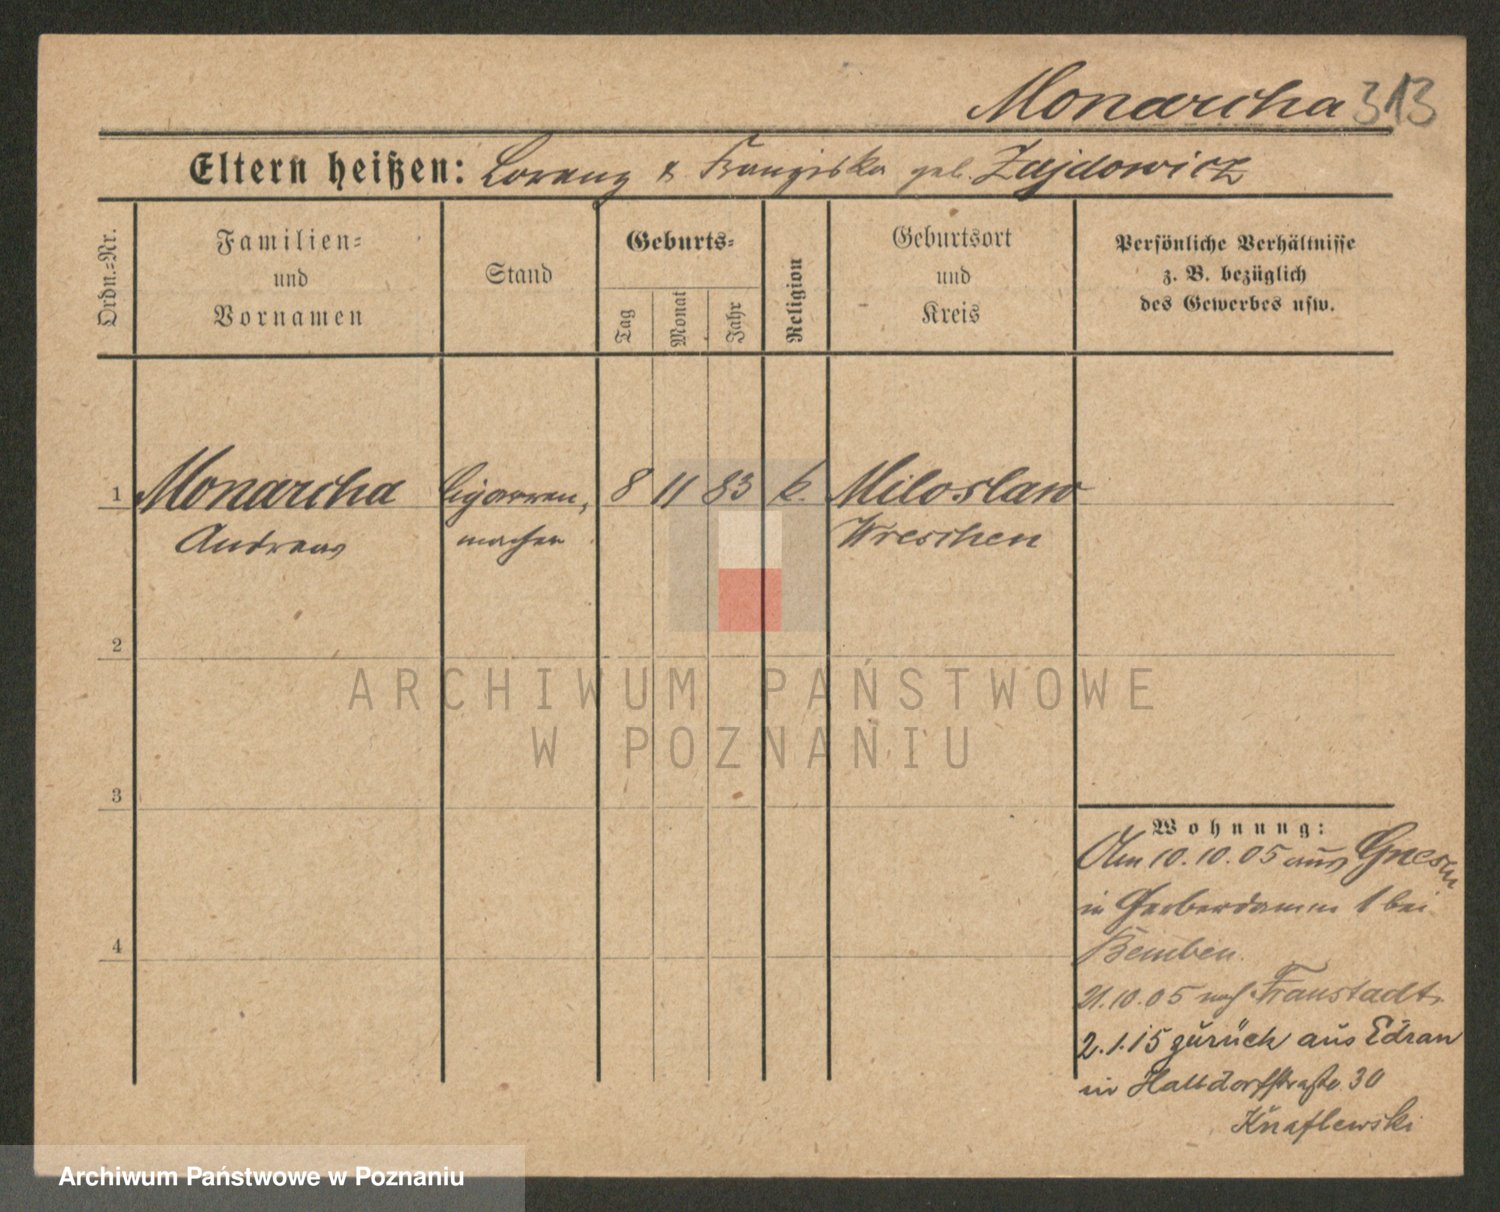 Monarcha 313
Eltern heißen: Lorenz & Franziska geb. Zajdowicz
Ordn.=Nr.
Familien=
und
Vornamen
Stand
Geburts=
Tag
Monat
Jahr
Religion
Geburtsort
und
Kreis
Persönliche Verhältnisse
z. B. bezüglich
des Gewerbes usw.
1 Monarcha Cigarren, 8 11 83 k. Miloslaw
Andreas macher Wreschen
2
ARCHIWUM PAŃSTWOWE
W POZNANIU
3
Wohnung:
Am 10.10.05 aus Gnesen
in Gerberdamm 1 bei
Bemben.
21.10.05 nach Fraustadt.
2.1.15 zurück aus
in 30
Knaflewski
4
Archiwum Państwowe w Poznaniu